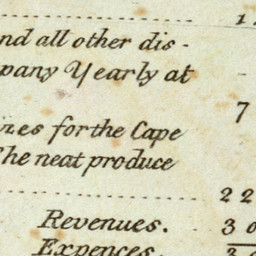 nd all other dis-
pany Yearly at
7
izes for the Cape
The neat produce
22
Revenues. 30
Expences.